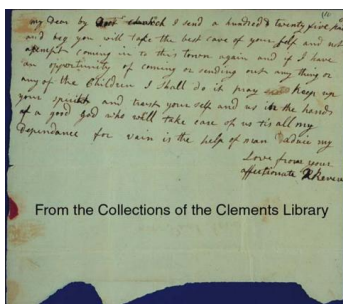 my Dear by
I send a hundred & twenty five
and beg you will take the best care of your self and not
attempt coming in to this town again and if I have
an opportunity of coming or sending out any thing or
any of the Children I shall do it pray keep up
your spirits and trust your self and us in the hands
of a good God who will take care of us tis all my
Dependance for vain is the help of man
my
Love from your
affectionate Revere
From the Collections of the Clements Library